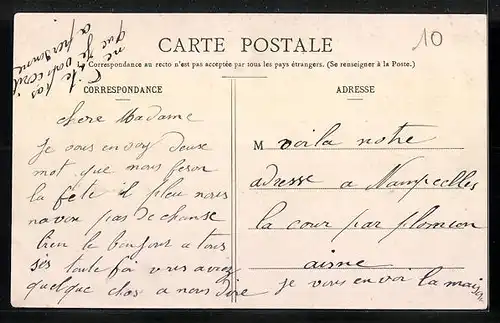 ne dite pas
que je vous ecrit
a personne
10
CARTE POSTALE
La Correspondance au recto n'est pas acceptée par tous les pays étrangers. (Se renseigner à la Poste.)
CORRESPONDANCE
chere Madame
Je vous envoy deux
mot que nous feson
la fete il pleu nous
navon pas de chanse
bien le bonjour a tous
si toute foi vous aviez
quelque chos a nous dire
ADRESSE
M voila notre
adresse a Nampcelles
la cour par plomion
aisne
je vous envoi la maison